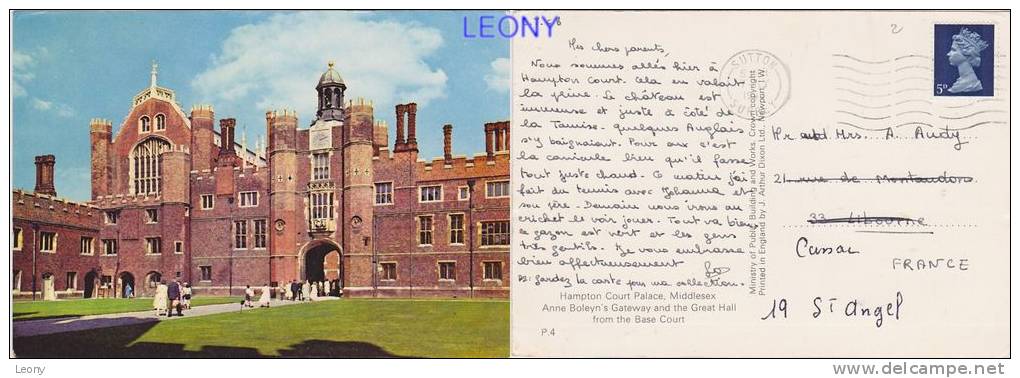 LEONY
Mes chers parents,
Nous sommes allés hier à
Hampton Court. Cela en valait
la peine. Le château est
immense et juste à côté de
la Tamise. quelques Anglais
s'y baignaient. Pour eux c'est
la canicule bien qu'il fasse
tout juste chaud. Ce matin j'ai
fait du tennis avec Johanna et
son père. Demain nous irons au
cricket le voir jouer. Tout va bien
le gazon est vert et les gens
très gentils. Je vous embrasse
bien affectueusement
PS: Gardez la carte pour ma collection.
Hampton Court Palace, Middlesex
Anne Boleyn's Gateway and the Great Hall
from the Base Court
P.4
Ministry of Public Building and Works. Crown copyright
Printed in England by J. Arthur Dixon Ltd., Newport, I.W.
2
SUTTON
SURREY
5D
Mr and Mrs. A. Audy
21 rue de
33 Libourne
Cussac
FRANCE
19 St Angel
Leony
delcampe.net